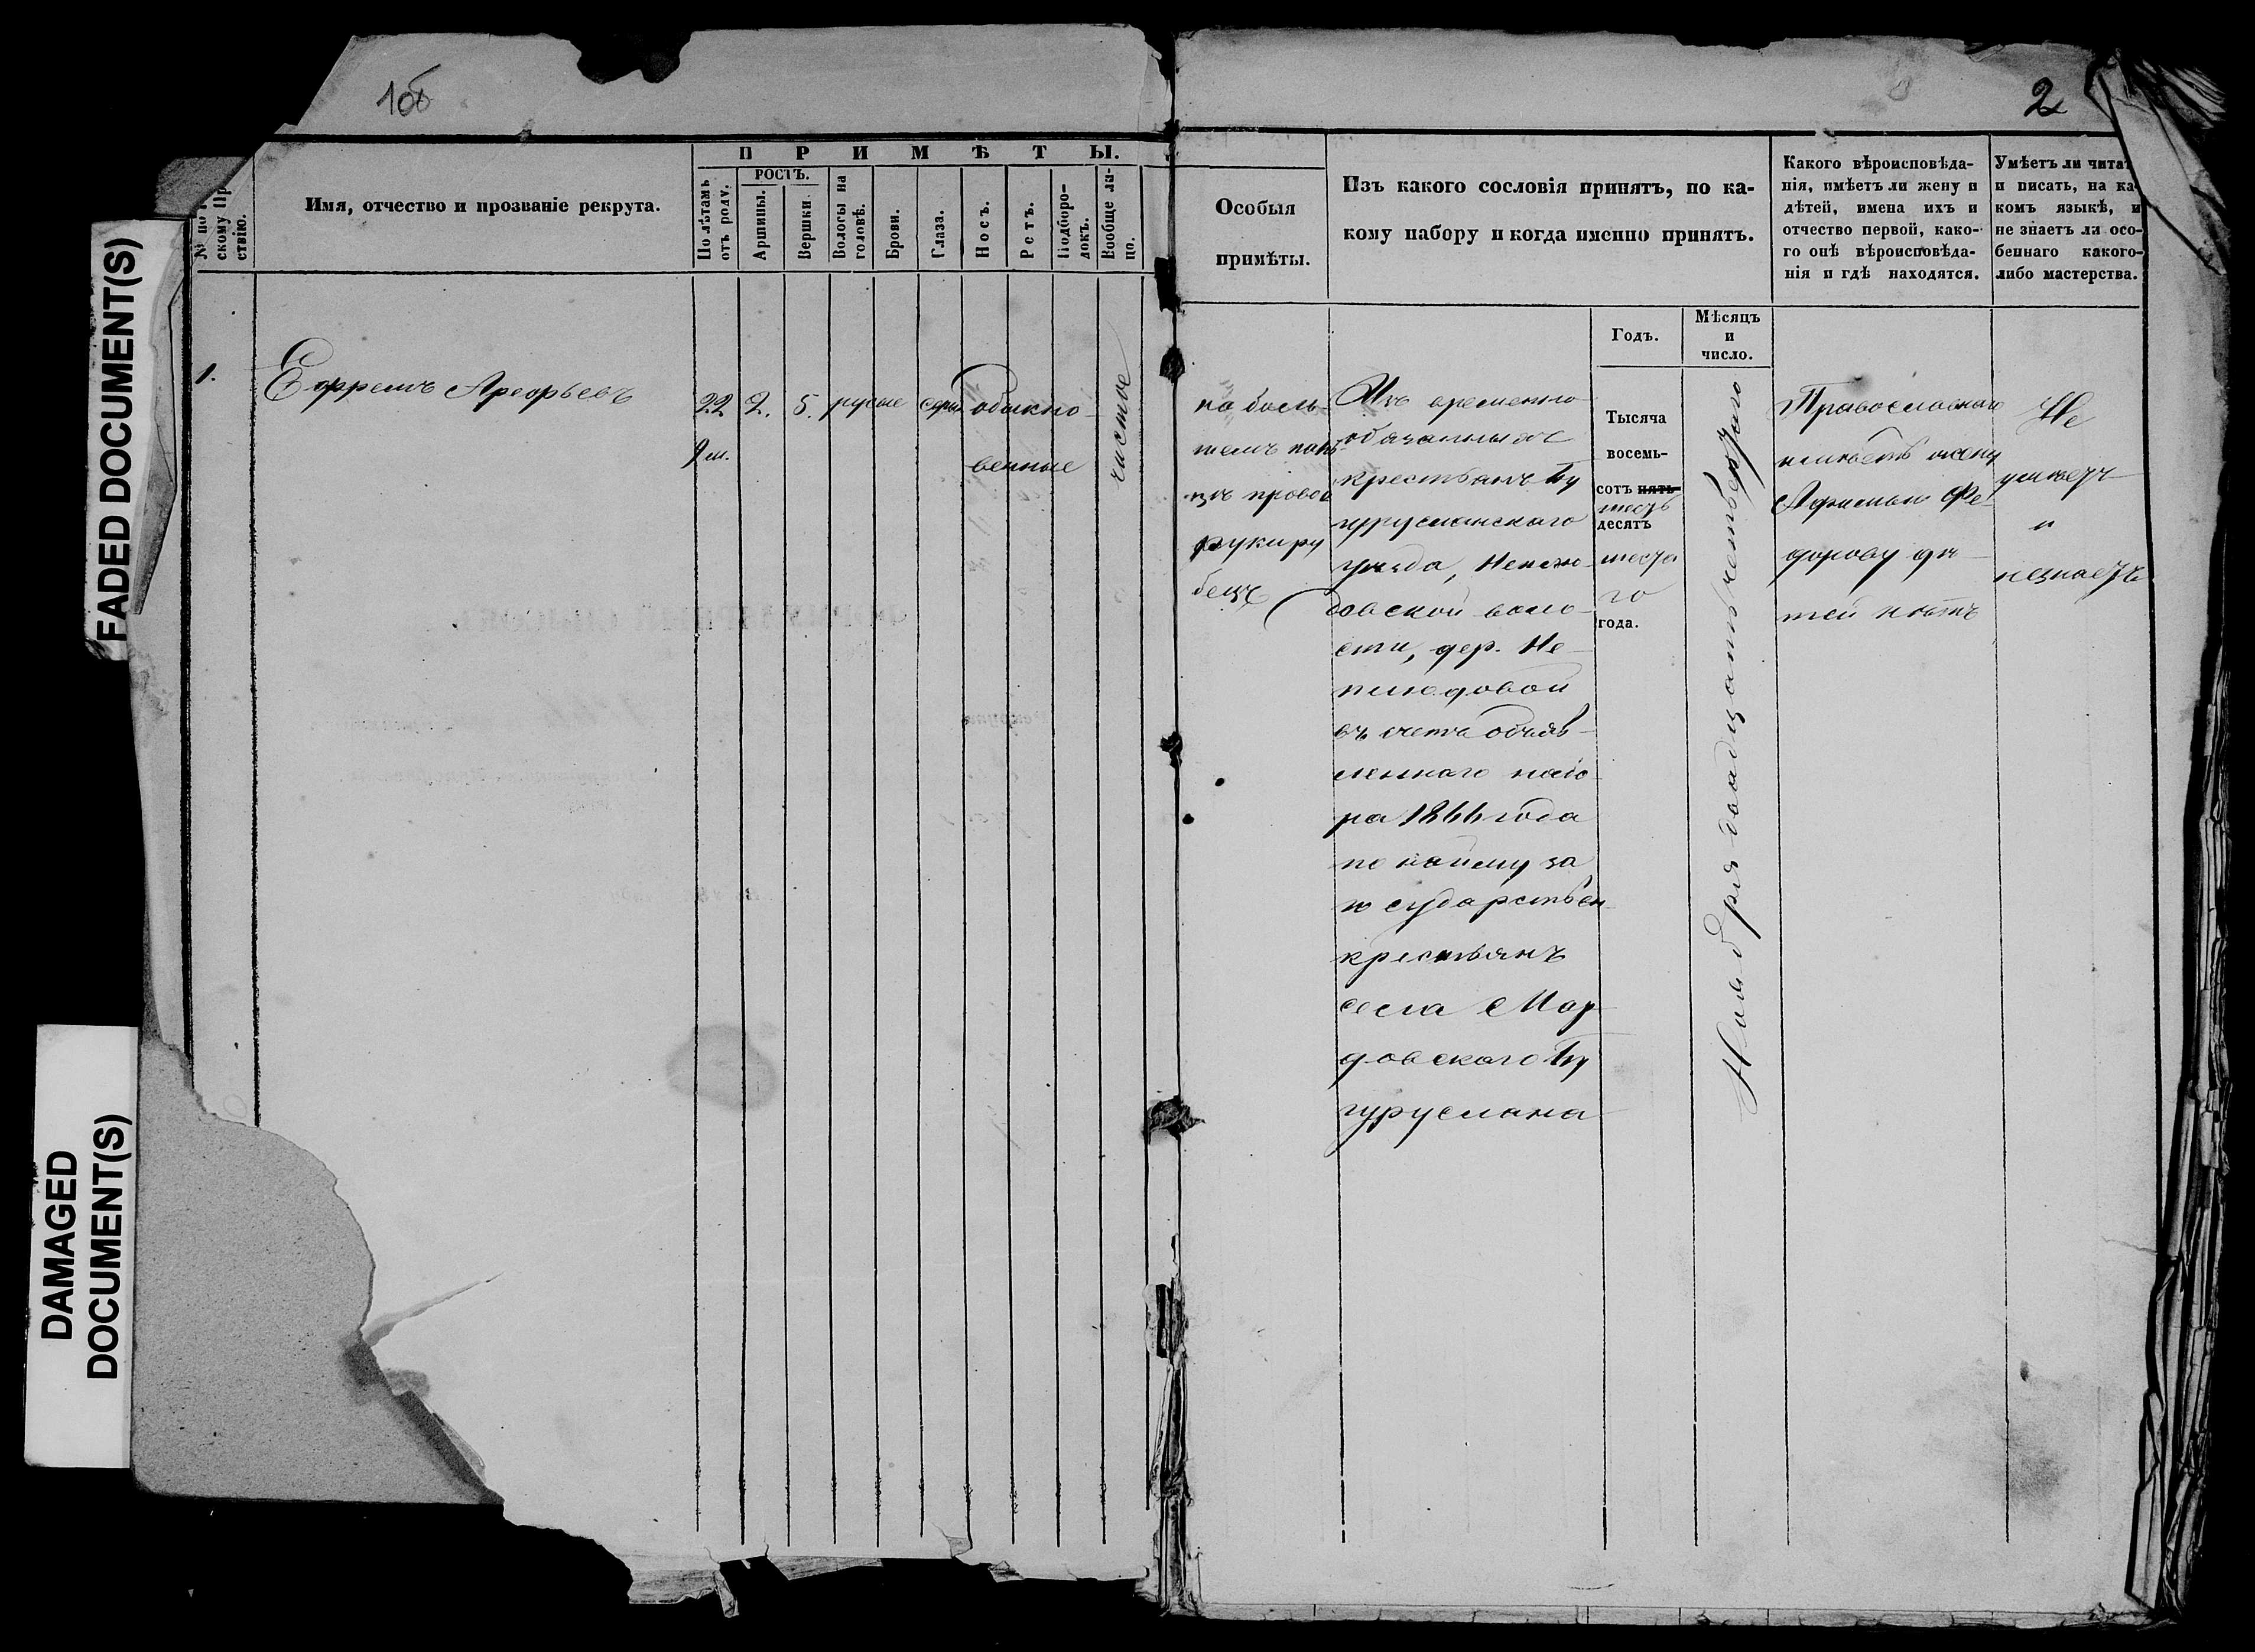 FADED DOCUMENT(S)
DAMAGED
DOCUMENT(S)
1об
№ по
скому Пр
ствію.
Имя, отчество и прозваніе рекрута.
ПРИМѢТЫ.
По лѣтамъ
отъ роду.
РОСТЪ.
Аршины.
Вершки.
Волосы на
головѣ.
Брови.
Глаза.
Носъ.
Ротъ.
Подборо-
докъ.
Вообще ли-
цо.
1.
Ефремъ
22
2.
5.
русые
обыкно-
венные
чистое
2
Особыя
примѣты.
Изъ какого сословія принятъ, по ка-
кому набору и когда именно принятъ.
Годъ.
Мѣсяцъ
и
число.
Какого вѣроисповѣда-
нія, имѣетъ ли жену и
дѣтей, имена ихъ и
отчество первой, како-
го онѣ вѣроисповѣда-
нія и гдѣ находятся.
Умѣетъ ли читат
и писать, на ка-
комъ языкѣ, и
не знаетъ ли осо-
беннаго какого-
либо мастерства.
на боль-
шомъ паль-
цѣ правой
руки ру
бецъ
Изъ временно
обязанныхъ
крестьянъ Бу
гурусланскаго
уѣзда,
воло-
сти, дер. Не-
въ счетъ объяв-
леннаго набо-
ра 1866 года
по найму за
государствен
крестьянъ
села Мор-
довскаго Бу
гуруслана
Тысяча
восемь-
сотъ пять-
шесть
десятъ
шеста
го
года.
Ноября двадцать четвертаго
Православнаго
имѣетъ жену
Афимью Фе-
дорову дѣ-
тей нѣтъ
Не
умѣетъ
и
незнаетъ